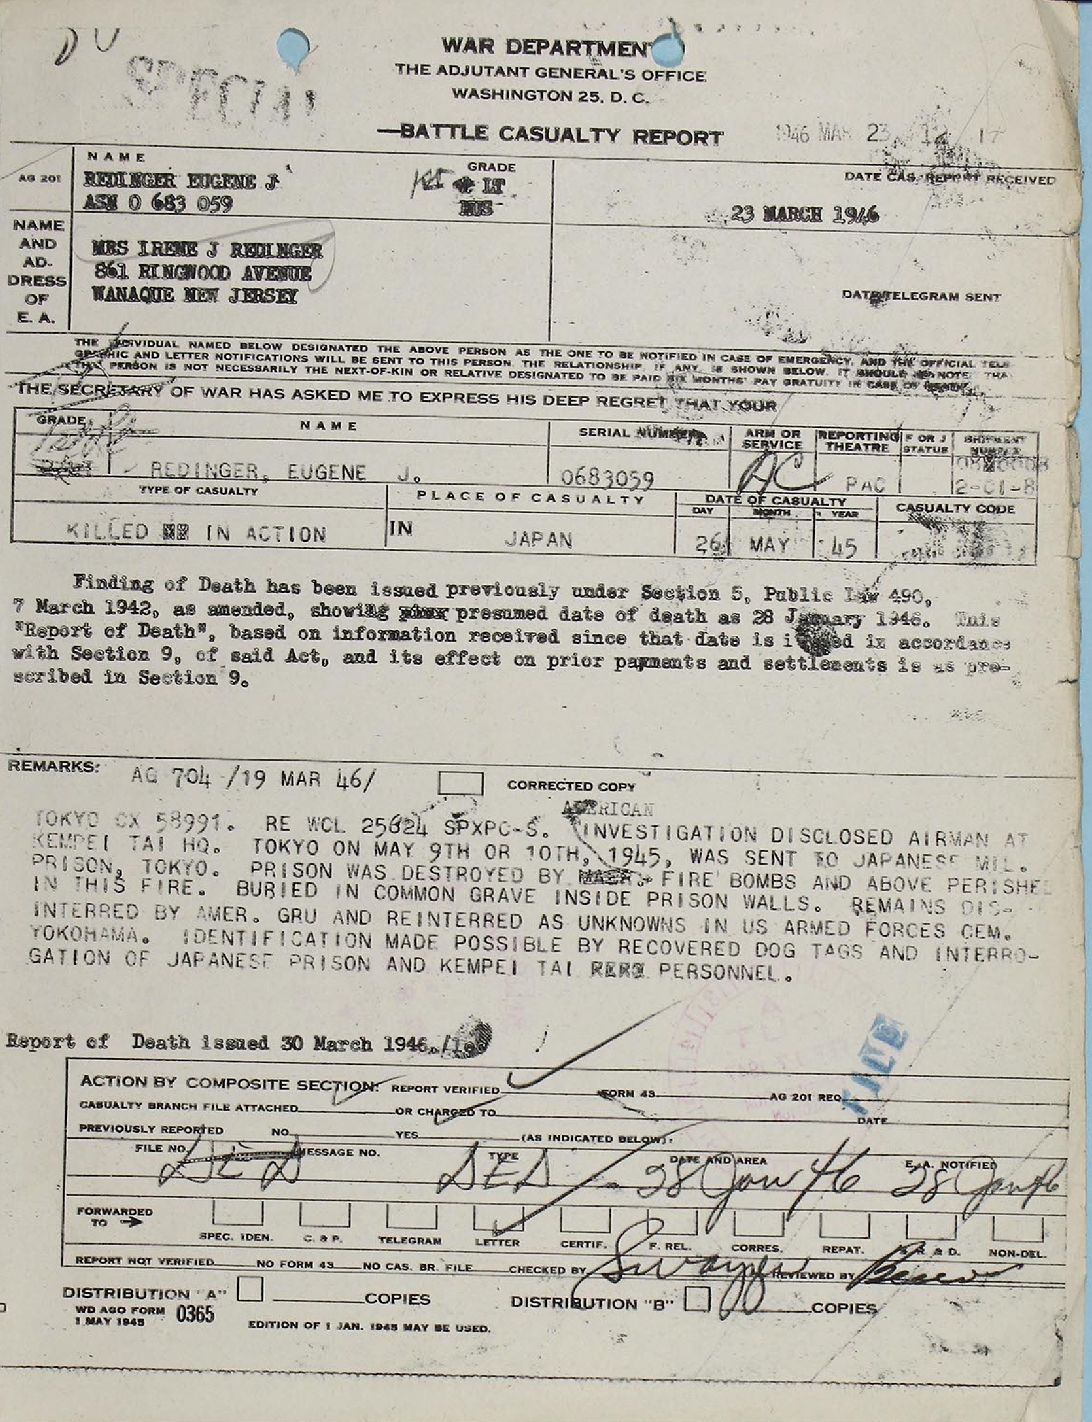 SPECIAL
WAR DEPARTMENT
THE ADJUTANT GENERAL'S OFFICE
WASHINGTON 25, D. C.
BATTLE CASUALTY REPORT
1946 MAR 23
AG 201
NAME
REDINGER EUGENE J
ASN O 683 059
GRADE
LT
DATE CAS. REPORT RECEIVED
23 MARCH 1946
NAME
AND
AD-
DRESS
OF
E. A.
MRS IRENE J REDINGER
861 RINGWOOD AVENUE
WANAQUE NEW JERSEY
DATE TELEGRAM SENT
THE INDIVIDUAL NAMED BELOW DESIGNATED THE ABOVE PERSON AS THE ONE TO BE NOTIFIED IN CASE OF EMERGENCY, AND THE OFFICIAL TELE-
GRAPHIC AND LETTER NOTIFICATIONS WILL BE SENT TO THIS PERSON. THE RELATIONSHIP, IF ANY, IS SHOWN BELOW. IT SHOULD BE NOTED THAT
THIS PERSON IS NOT NECESSARILY THE NEXT-OF-KIN OR RELATIVE DESIGNATED TO BE PAID SIX MONTHS' PAY GRATUITY IN CASE OF DEATH.
THE SECRETARY OF WAR HAS ASKED ME TO EXPRESS HIS DEEP REGRET THAT YOUR
GRADE
NAME
SERIAL NUMBER
ARM OR SERVICE
REPORTING THEATRE
F OR J STATUS
SHIPMENT NUMBER
REDINGER, EUGENE J.
0683059
AC
PAC
2-01-8
TYPE OF CASUALTY
PLACE OF CASUALTY
DATE OF CASUALTY
CASUALTY CODE
DAY MONTH YEAR
KILLED IN ACTION
IN
JAPAN
26 MAY 45
Finding of Death has been issued previously under Section 5, Public Law 490,
7 March 1942, as amended, showing presumed date of death as 28 January 1946. This
"Report of Death", based on information received since that date is issued in accordance
with Section 9, of said Act, and its effect on prior payments and settlements is as pre-
scribed in Section 9.
REMARKS:
AG 704 /19 MAR 46/
CORRECTED COPY
AMERICAN
TOKYO CX 58991. RE WCL 25624 SPXPC-S. INVESTIGATION DISCLOSED AIRMAN AT
KEMPEI TAI HQ. TOKYO ON MAY 9TH OR 10TH, 1945, WAS SENT TO JAPANESE MIL.
PRISON, TOKYO. PRISON WAS DESTROYED BY FIRE BOMBS AND ABOVE PERISHED
IN THIS FIRE. BURIED IN COMMON GRAVE INSIDE PRISON WALLS. REMAINS DIS-
INTERRED BY AMER. GRU AND REINTERRED AS UNKNOWNS IN US ARMED FORCES CEM.
YOKOHAMA. IDENTIFICATION MADE POSSIBLE BY RECOVERED DOG TAGS AND INTERRO-
GATION OF JAPANESE PRISON AND KEMPEI TAI PERSONNEL.
Report of Death issued 30 March 1946.
FILE
ACTION BY COMPOSITE SECTION: REPORT VERIFIED FORM 43 AG 201 REQ.
CASUALTY BRANCH FILE ATTACHED OR CHARGED TO DATE
PREVIOUSLY REPORTED NO YES (AS INDICATED BELOW):
FILE NO. MESSAGE NO. TYPE DATE AND AREA E. A. NOTIFIED
DED DED 28 Jan 46 28 Jan 46
FORWARDED
TO
SPEC. IDEN. C. & P. TELEGRAM LETTER CERTIF. F. REL. CORRES. REPAT. & D. NON-DEL.
REPORT NOT VERIFIED NO FORM 43 NO CAS. BR. FILE CHECKED BY REVIEWED BY
DISTRIBUTION "A" COPIES
DISTRIBUTION "B" COPIES
WD AGO FORM 0365
1 MAY 1945
EDITION OF 1 JAN. 1945 MAY BE USED.